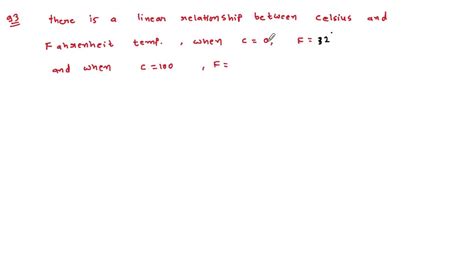 93 there is a linear relationship between celsius and
Fahrenheit temp. , when C = 0, F = 32°
and when C = 100 , F =